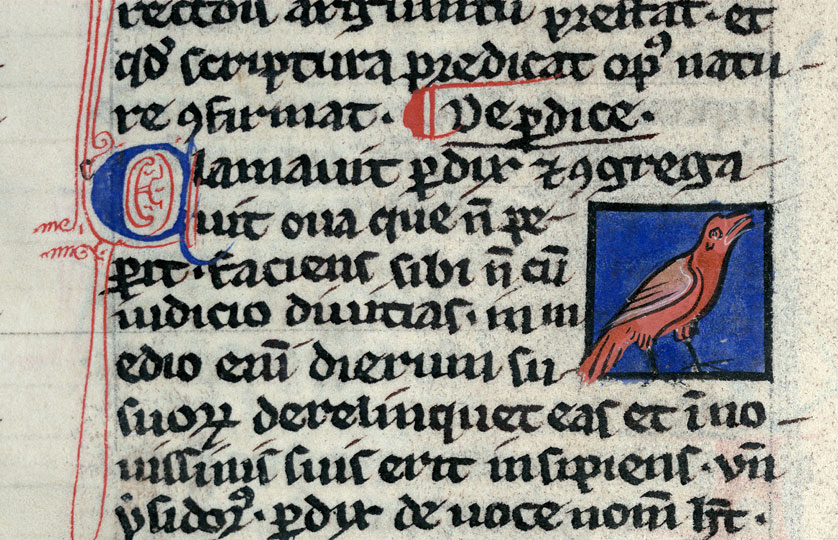 rectori argumtū prestat. et
qđ scriptura predicat op⁹ natu-
re ꝯfirmat. De ꝑdice.
Clamauit ꝑdix ⁊ ꝯgrega-
uit oua que n̄ pe-
perit. faciens sibi n̄ cū
iudicio diuitias. in m
edio enī dierum su
suoꝝ derelinquet eas et ī no-
uissimis suis erit insipiens. vn̄
ysidor⁹. ꝑdix de uoce nom̄ hꝫ.